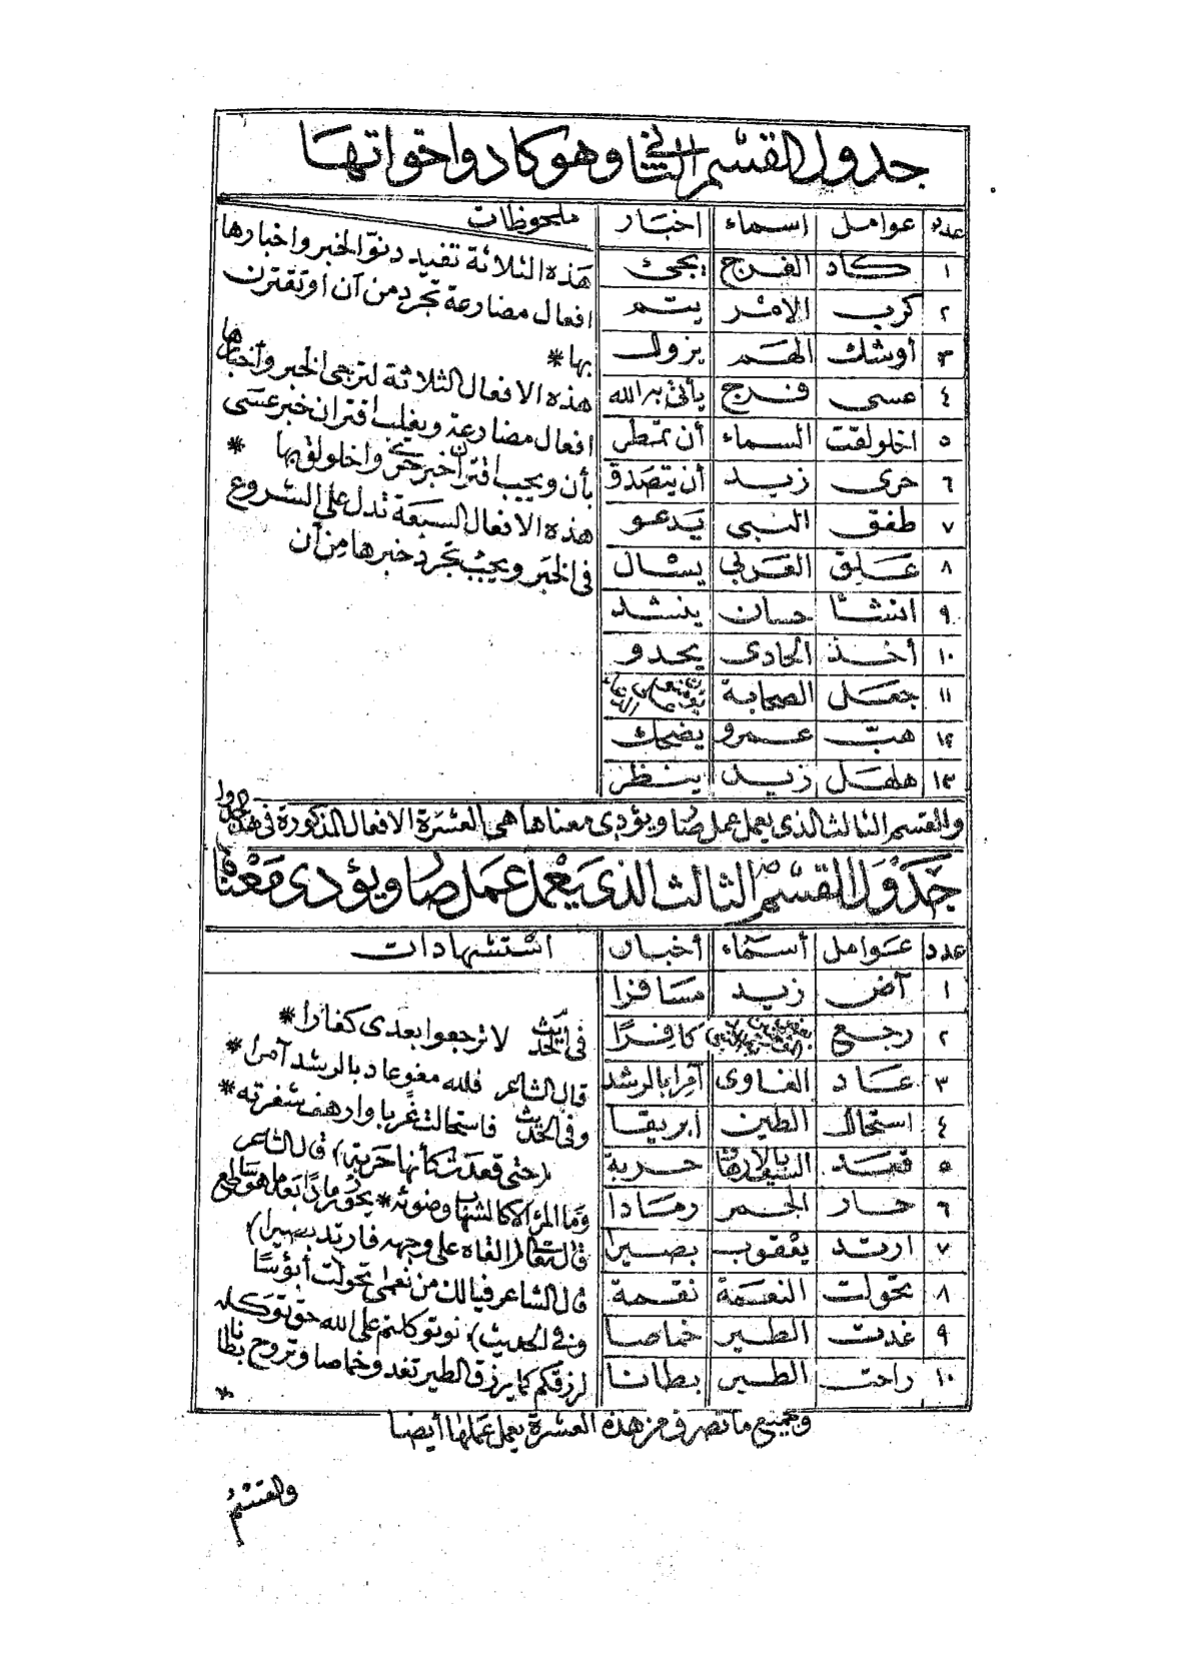 جدول القسم الثاني وهو كاد واخواتها
عدد عوامل اسماء اخبار ملحوظات
١ كاد الفرج يجئ
٢ كرب الامر يتم
٣ أوشك الهم يزول
٤ عسى فرج يأتي به الله
٥ اخلولقت السماء أن تمطر
٦ حرى زيد أن يتصدق
٧ طفق النبي يدعو
٨ علق القربى يسال
٩ انشأ حسان ينشد
١٠ أخذ الحادى يحدو
١١ جعل الصحابة
١٢ هبّ عمرو يضحك
١٣ هلهل زيد ينظر
هذه الثلاثة تفيد دنوّ الخبر واخبارها
افعال مضارعة تجرد من آن او تقترن
بها *
هذه الافعال الثلاثة لترجى الخبر وأخبارها
افعال مضارعة ويغلب اقتران خبر عسى
بأن ويجب اقتران خبر حرى واخلولق بها *
هذه الافعال السبعة تدل على الشروع
فى الخبر ويجب تجرد خبرها من أن
والقسم الثالث الذى يعمل عمل صار ويؤدى معناها هى العشرة الافعال المذكورة فى هذا الجدول
جدول القسم الثالث الذى يعمل عمل صار ويؤدى معناها
عدد عوامل أسماء أخبار استشهادات
١ آض زيد مسافرا
٢ رجع كافرًا
٣ عاد الغاوى آمرا بالرشد
٤ استحال الطين ابريقا
٥ قعد السيف بالارهاف حربة
٦ حار الجمر رمادا
٧ ارتد يعقوب بصيرا
٨ تحولت النعمة نقمة
٩ غدت الطير خماصا
١٠ راحت الطير بطانا
فى الحديث لا ترجعوا بعدى كفارا *
قال الشاعر فلله مغو عاد بالرشد آمرا *
وفى الحديث فاستحالت غربا وارهف شفرته *
(حتى قعدت كأنها حربة) قال الشاعر
وما المرء الا كالشهاب وضوئه * يحور رمادا بعد ما هو ساطع
قال تعالى (القاه على وجهه فارتد بصيرا)
قال الشاعر فيالك من نعمى تحولت أبؤسًا
وفى الحديث) لو توكلتم على الله حق توكله
لرزقكم كما يرزق الطير تغدو خماصا وتروح بطانا
وجميع ما تصرف من هذه العشرة يعمل عملها أيضا
والقسم